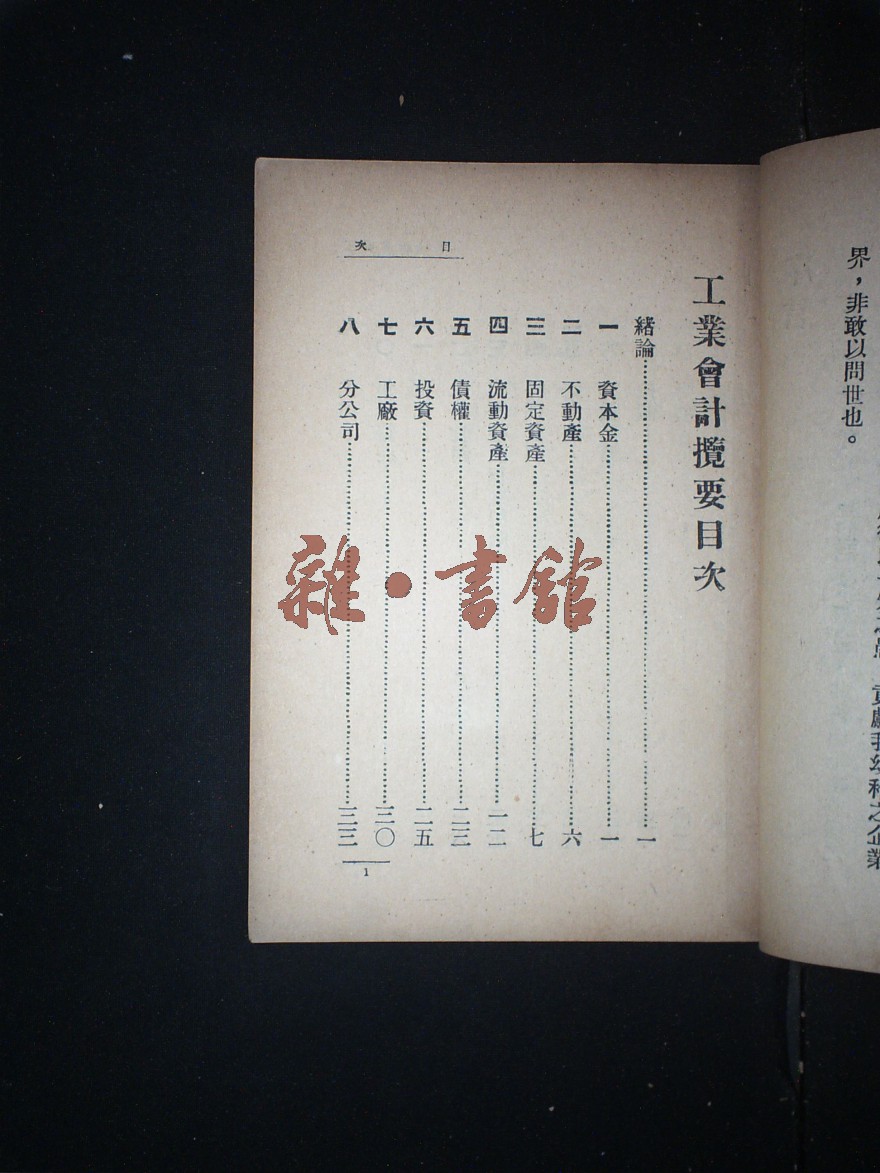 界，非敢以問世也。
貢獻我幼稚之企業
工業會計攬要目次
緒論……一
一 資本金……一
二 不動產……六
三 固定資產……七
四 流動資產……一二
五 債權……二三
六 投資……二五
七 工廠……三〇
八 分公司……三三
目次
1
雜·書館